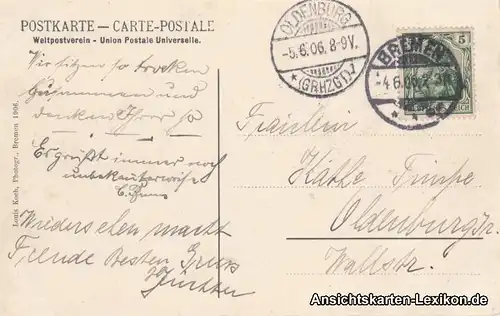 POSTKARTE — CARTE-POSTALE
Weltpostverein - Union Postale Universelle.
Wir sitzen so trocken
zusammen und
denken Ihrer so
Es grüßt immer noch
unbekannterweise
Wiedersehen macht
Freude Besten Gruss
Louis Koch, Photogr., Bremen 1906.
OLDENBURG
-5.6.06. 8-9V.
*(GRHZGT).
BREMEN
-4.6.06.
5
Fräulein
Käthe Timpe
Oldenburg i/Gr.
Wallstr.
Ansichtskarten-Lexikon.de